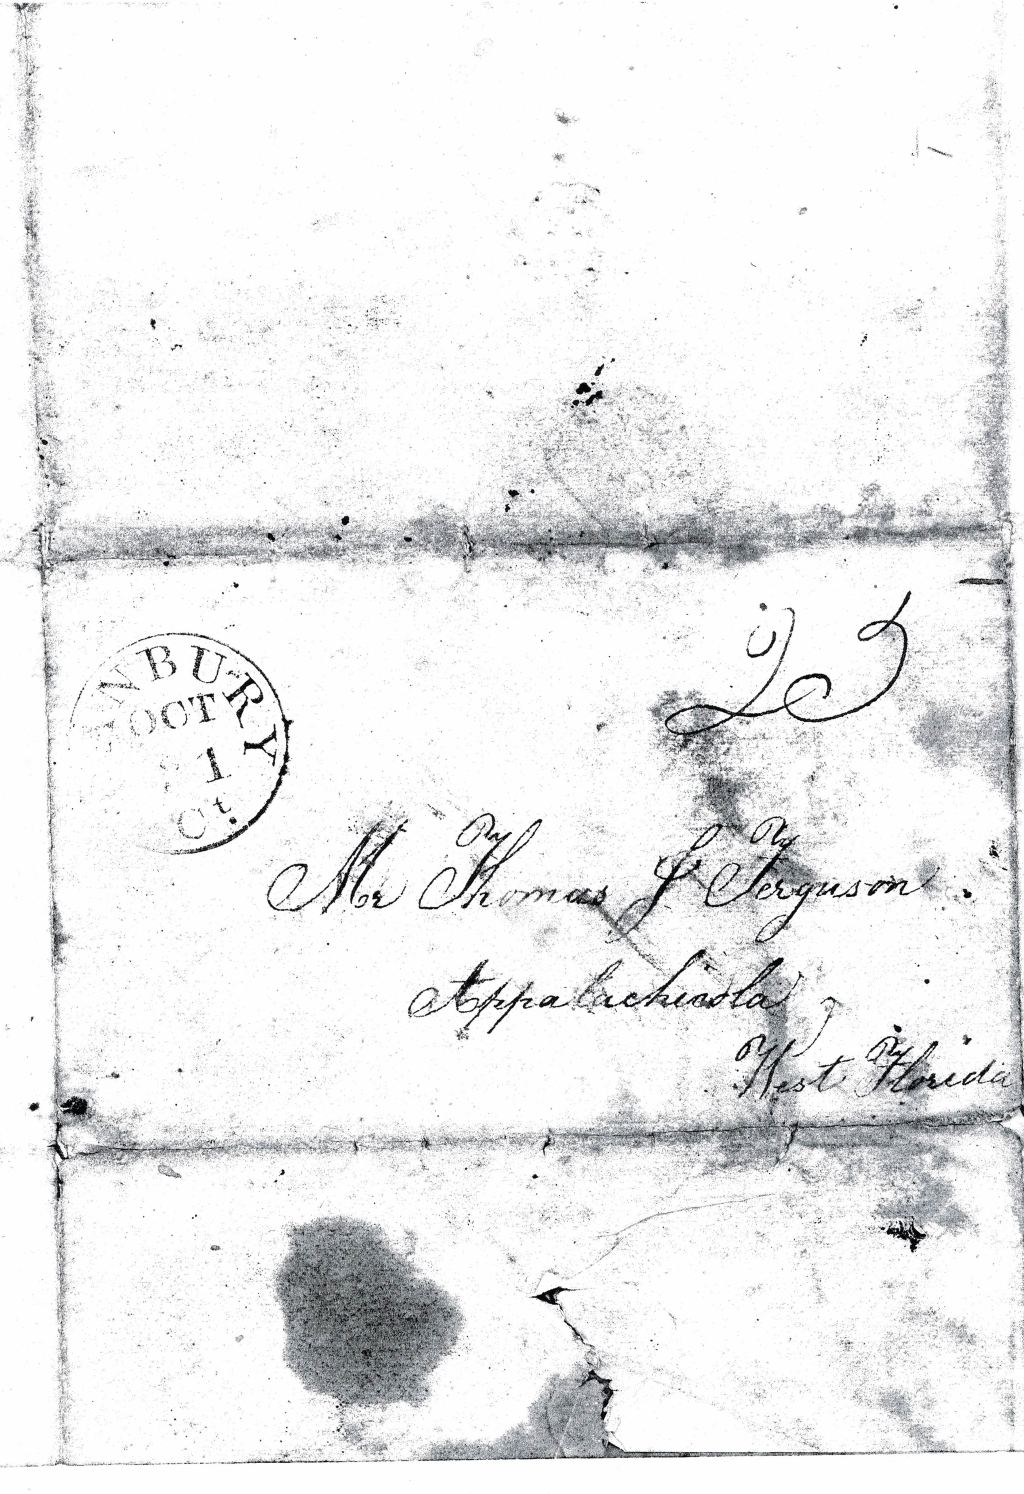 25
NBURY
OCT
1
Ct.
Mr Thomas S Ferguson
Appalachicola,
West Florida